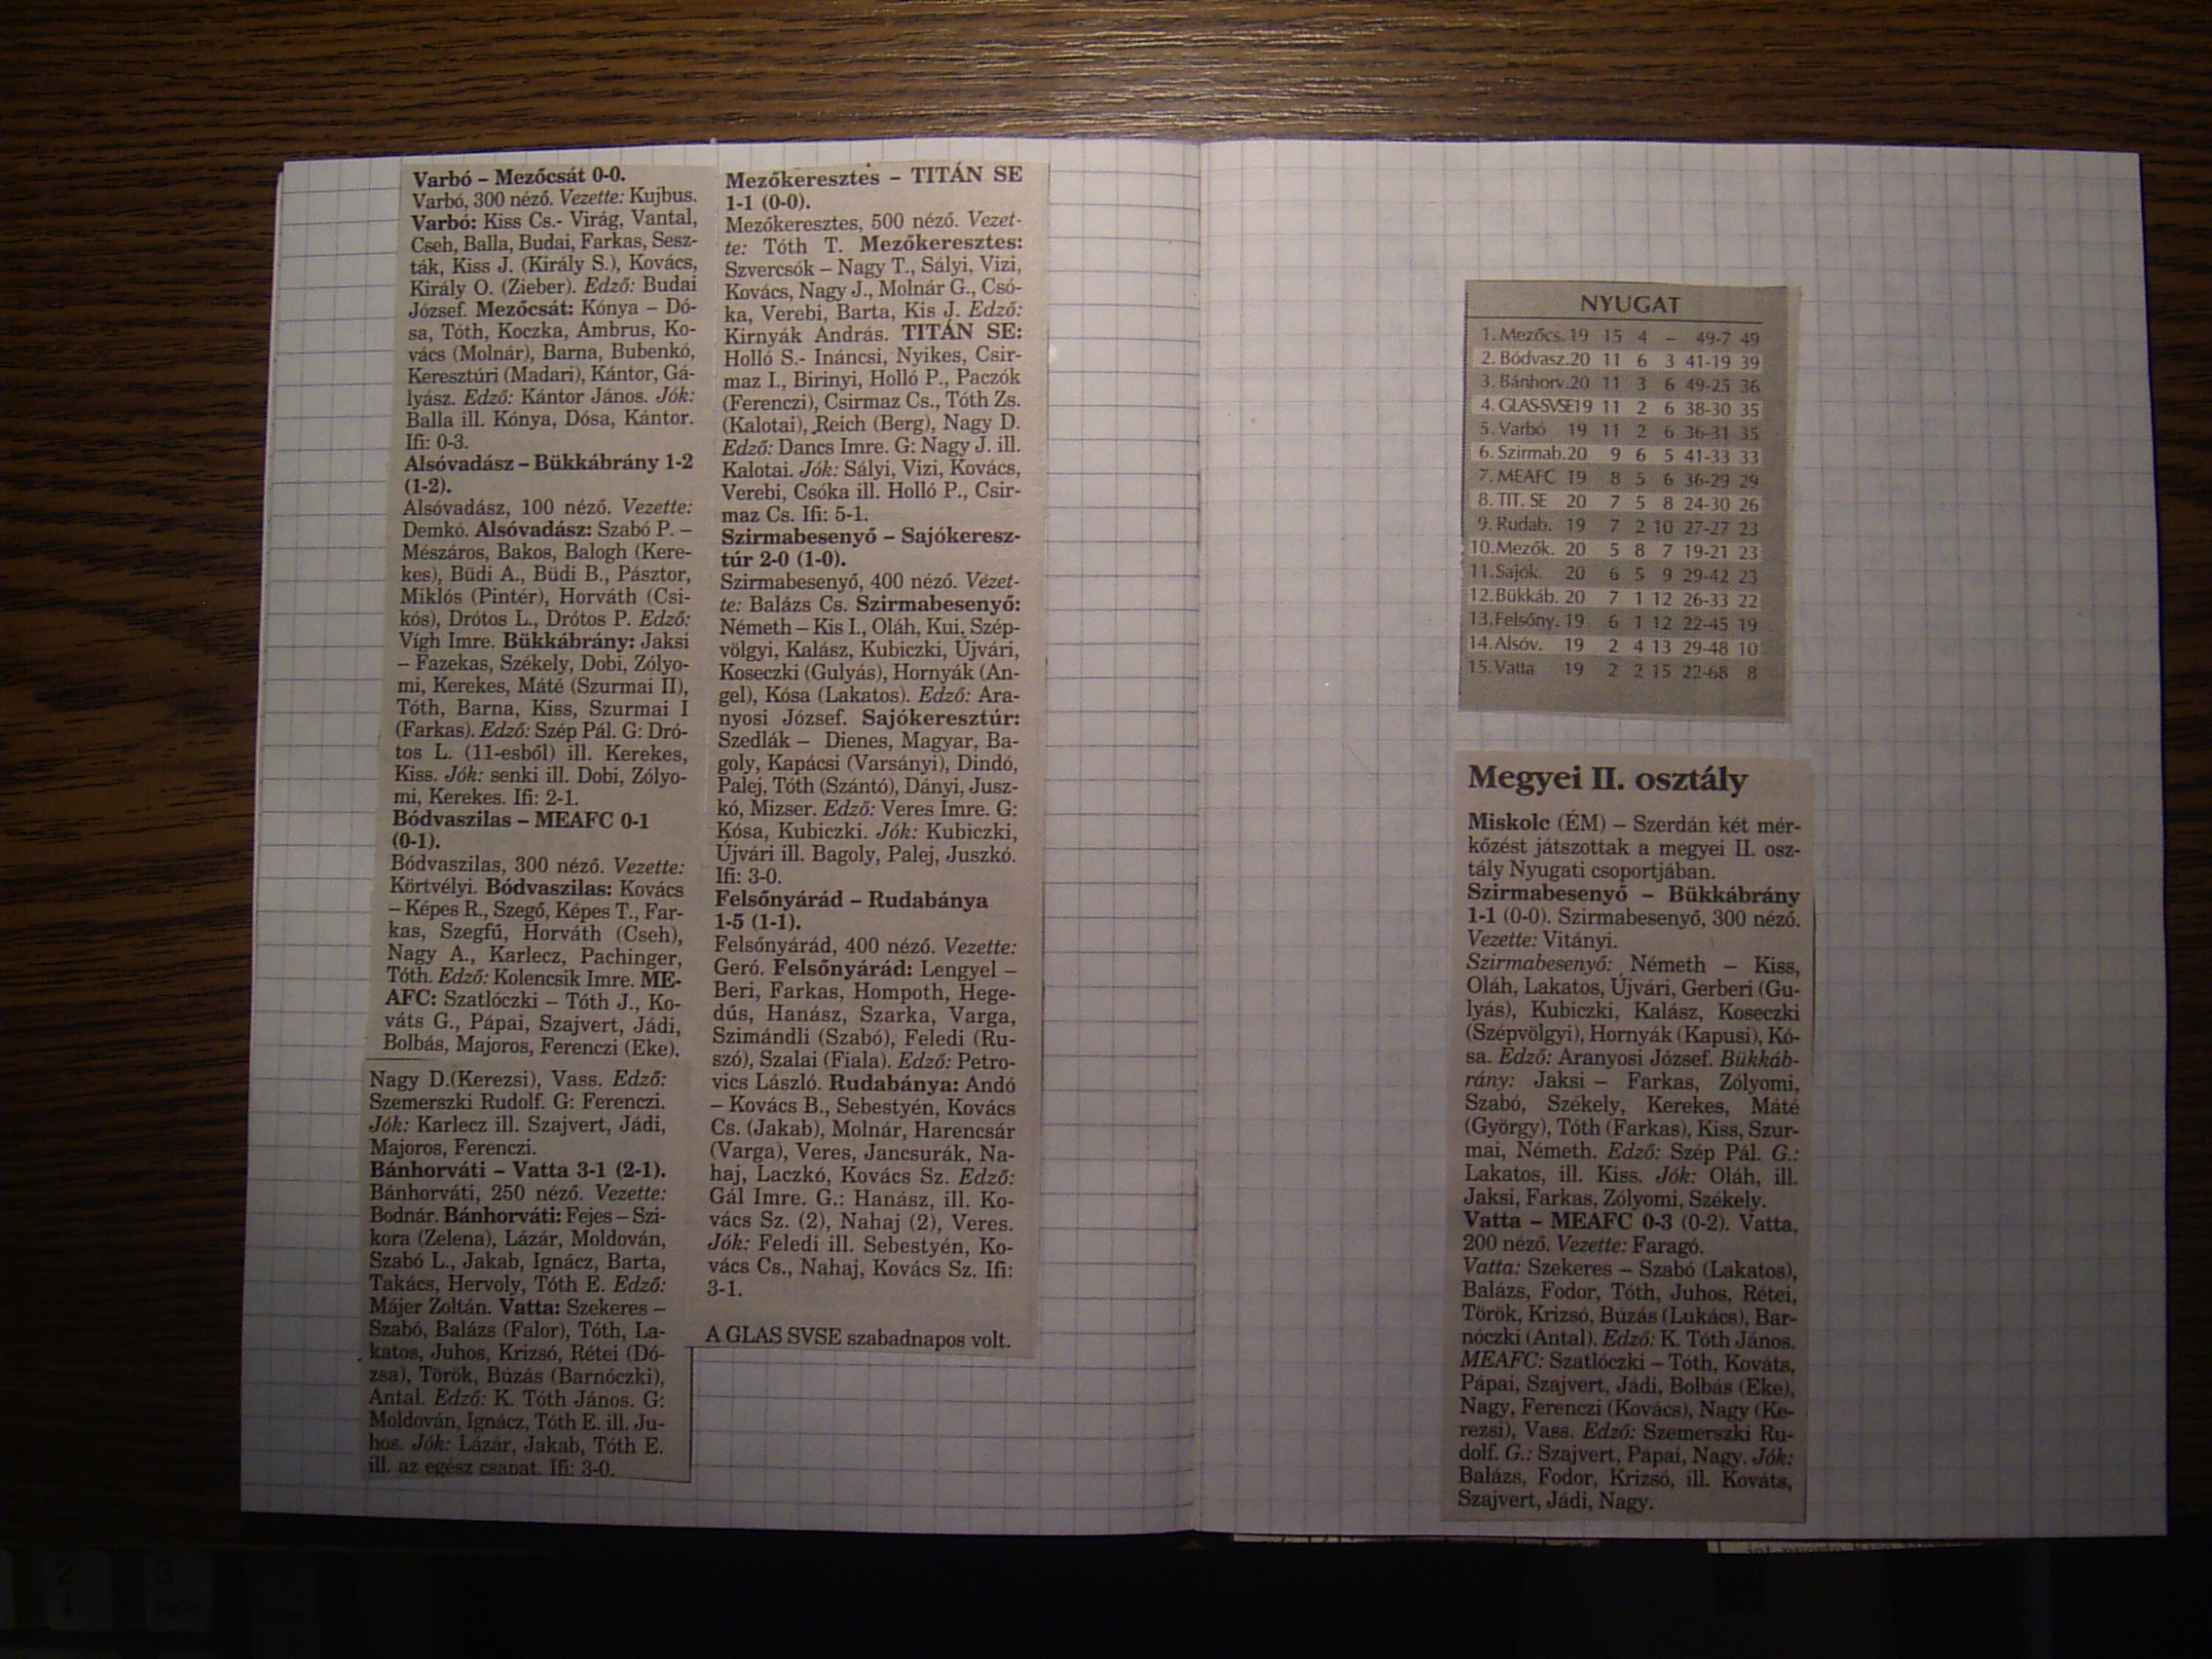 Varbó – Mezőcsát 0-0.
Varbó, 300 néző. Vezette: Kujbus.
Varbó: Kiss Cs.- Virág, Vantal,
Cseh, Balla, Budai, Farkas, Sesz-
ták, Kiss J. (Király S.), Kovács,
Király O. (Zieber). Edző: Budai
József. Mezőcsát: Kónya – Dó-
sa, Tóth, Koczka, Ambrus, Ko-
vács (Molnár), Barna, Bubenkó,
Keresztúri (Madari), Kántor, Gá-
lyász. Edző: Kántor János. Jók:
Balla ill. Kónya, Dósa, Kántor.
Ifi: 0-3.
Alsóvadász – Bükkábrány 1-2
(1-2).
Alsóvadász, 100 néző. Vezette:
Demkó. Alsóvadász: Szabó P. –
Mészáros, Bakos, Balogh (Kere-
kes), Büdi A., Büdi B., Pásztor,
Miklós (Pintér), Horváth (Csi-
kós), Drótos L., Drótos P. Edző:
Vígh Imre. Bükkábrány: Jaksi
– Fazekas, Székely, Dobi, Zólyo-
mi, Kerekes, Máté (Szurmai II),
Tóth, Barna, Kiss, Szurmai I
(Farkas). Edző: Szép Pál. G: Dró-
tos L. (11-esből) ill. Kerekes,
Kiss. Jók: senki ill. Dobi, Zólyo-
mi, Kerekes. Ifi: 2-1.
Bódvaszilas – MEAFC 0-1
(0-1).
Bódvaszilas, 300 néző. Vezette:
Körtvélyi. Bódvaszilas: Kovács
– Képes R., Szegő, Képes T., Far-
kas, Szegfű, Horváth (Cseh),
Nagy A., Karlecz, Pachinger,
Tóth. Edző: Kolencsik Imre. ME-
AFC: Szatlóczki – Tóth J., Ko-
váts G., Pápai, Szajvert, Jádi,
Bolbás, Majoros, Ferenczi (Eke).
Nagy D.(Kerezsi), Vass. Edző:
Szemerszki Rudolf. G: Ferenczi.
Jók: Karlecz ill. Szajvert, Jádi,
Majoros, Ferenczi.
Bánhorváti – Vatta 3-1 (2-1).
Bánhorváti, 250 néző. Vezette:
Bodnár. Bánhorváti: Fejes – Szi-
kora (Zelena), Lázár, Moldován,
Szabó L., Jakab, Ignácz, Barta,
Takács, Hervoly, Tóth E. Edző:
Májer Zoltán. Vatta: Szekeres –
Szabó, Balázs (Falor), Tóth, La-
katos, Juhos, Krizsó, Rétei (Dó-
zsa), Török, Búzás (Barnóczki),
Antal. Edző: K. Tóth János. G:
Moldován, Ignácz, Tóth E. ill. Ju-
hos. Jók: Lázár, Jakab, Tóth E.
ill. az egész csapat. Ifi: 3-0.
Mezőkeresztes – TITÁN SE
1-1 (0-0).
Mezőkeresztes, 500 néző. Vezet-
te: Tóth T. Mezőkeresztes:
Szvercsók – Nagy T., Sályi, Vizi,
Kovács, Nagy J., Molnár G., Csó-
ka, Verebi, Barta, Kis J. Edző:
Kirnyák András. TITÁN SE:
Holló S.- Ináncsi, Nyikes, Csir-
maz I., Birinyi, Holló P., Paczók
(Ferenczi), Csirmaz Cs., Tóth Zs.
(Kalotai), Reich (Berg), Nagy D.
Edző: Dancs Imre. G: Nagy J. ill.
Kalotai. Jók: Sályi, Vizi, Kovács,
Verebi, Csóka ill. Holló P., Csir-
maz Cs. Ifi: 5-1.
Szirmabesenyő – Sajókeresz-
túr 2-0 (1-0).
Szirmabesenyő, 400 néző. Vezet-
te: Balázs Cs. Szirmabesenyő:
Németh – Kis I., Oláh, Kui, Szép-
völgyi, Kalász, Kubiczki, Újvári,
Koseczki (Gulyás), Hornyák (An-
gel), Kósa (Lakatos). Edző: Ara-
nyosi József. Sajókeresztúr:
Szedlák – Dienes, Magyar, Ba-
goly, Kapácsi (Varsányi), Dindó,
Palej, Tóth (Szántó), Dányi, Jusz-
kó, Mizser. Edző: Veres Imre. G:
Kósa, Kubiczki. Jók: Kubiczki,
Újvári ill. Bagoly, Palej, Juszkó.
Ifi: 3-0.
Felsőnyárád – Rudabánya
1-5 (1-1).
Felsőnyárád, 400 néző. Vezette:
Geró. Felsőnyárád: Lengyel –
Beri, Farkas, Hompoth, Hege-
dús, Hanász, Szarka, Varga,
Szimándli (Szabó), Feledi (Ru-
szó), Szalai (Fiala). Edző: Petro-
vics László. Rudabánya: Andó
– Kovács B., Sebestyén, Kovács
Cs. (Jakab), Molnár, Harencsár
(Varga), Veres, Jancsurák, Na-
haj, Laczkó, Kovács Sz. Edző:
Gál Imre. G.: Hanász, ill. Ko-
vács Sz. (2), Nahaj (2), Veres.
Jók: Feledi ill. Sebestyén, Ko-
vács Cs., Nahaj, Kovács Sz. Ifi:
3-1.
A GLAS SVSE szabadnapos volt.
NYUGAT
1. Mezőcs. 19 15 4 – 49-7 49
2. Bódvasz. 20 11 6 3 41-19 39
3. Bánhorv. 20 11 3 6 49-25 36
4. GLAS-SVSE 19 11 2 6 38-30 35
5. Varbó 19 11 2 6 36-31 35
6. Szirmab. 20 9 6 5 41-33 33
7. MEAFC 19 8 5 6 36-29 29
8. TIT. SE 20 7 5 8 24-30 26
9. Rudab. 19 7 2 10 27-27 23
10. Mezők. 20 5 8 7 19-21 23
11. Sajók. 20 6 5 9 29-42 23
12. Bükkáb. 20 7 1 12 26-33 22
13. Felsőny. 19 6 1 12 22-45 19
14. Alsóv. 19 2 4 13 29-48 10
15. Vatta 19 2 2 15 22-68 8
Megyei II. osztály
Miskolc (ÉM) – Szerdán két mér-
kőzést játszottak a megyei II. osz-
tály Nyugati csoportjában.
Szirmabesenyő – Bükkábrány
1-1 (0-0). Szirmabesenyő, 300 néző.
Vezette: Vitányi.
Szirmabesenyő: Németh – Kiss,
Oláh, Lakatos, Újvári, Gerberi (Gu-
lyás), Kubiczki, Kalász, Koseczki
(Szépvölgyi), Hornyák (Kapusi), Kó-
sa. Edző: Aranyosi József. Bükkáb-
rány: Jaksi – Farkas, Zólyomi,
Szabó, Székely, Kerekes, Máté
(György), Tóth (Farkas), Kiss, Szur-
mai, Németh. Edző: Szép Pál. G.:
Lakatos, ill. Kiss. Jók: Oláh, ill.
Jaksi, Farkas, Zólyomi, Székely.
Vatta – MEAFC 0-3 (0-2). Vatta,
200 néző. Vezette: Faragó.
Vatta: Szekeres – Szabó (Lakatos),
Balázs, Fodor, Tóth, Juhos, Rétei,
Török, Krizsó, Búzás (Lukács), Bar-
nóczki (Antal). Edző: K. Tóth János.
MEAFC: Szatlóczki – Tóth, Kováts,
Pápai, Szajvert, Jádi, Bolbás (Eke),
Nagy, Ferenczi (Kovács), Nagy (Ke-
rezsi), Vass. Edző: Szemerszki Ru-
dolf. G.: Szajvert, Pápai, Nagy. Jók:
Balázs, Fodor, Krizsó, ill. Kováts,
Szajvert, Jádi, Nagy.
2
3